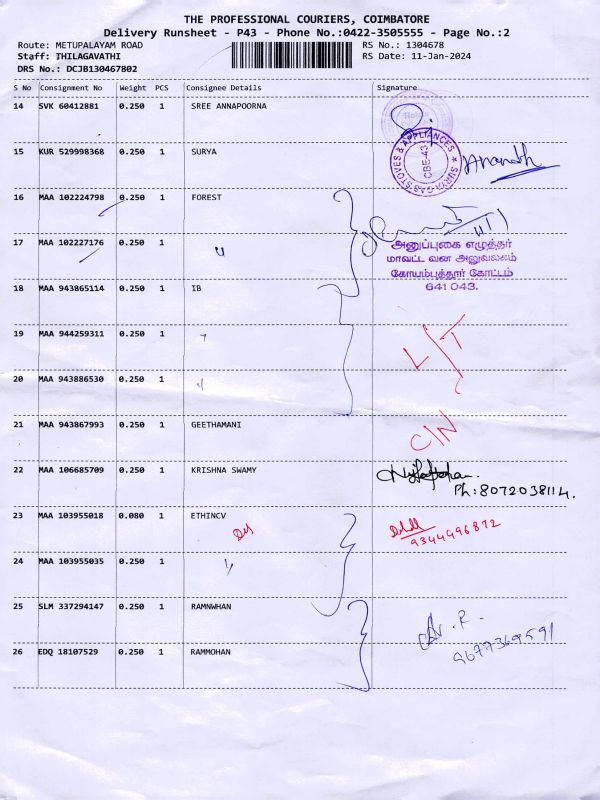 THE PROFESSIONAL COURIERS, COIMBATORE
Delivery Runsheet - P43 - Phone No.:0422-3505555 - Page No.:2
Route: METUPALAYAM ROAD
RS No.: 1304678
Staff: THILAGAVATHI
RS Date: 11-Jan-2024
DRS No.: DCJB130467802
S No Consignment No Weight PCS Consignee Details Signature
14 SVK 60412881 0.250 1 SREE ANNAPOORNA
SURYA GAS STOVES & APPLIANCES
CBE-43
15 KUR 529998368 0.250 1 SURYA
Ananth
16 MAA 102224798 0.250 1 FOREST
17 MAA 102227176 0.250 1
அனுப்புகை எழுத்தர்
மாவட்ட வன அலுவலகம்
கோயம்புத்தூர் கோட்டம்
641 043.
18 MAA 943865114 0.250 1 IB
19 MAA 944259311 0.250 1
L/T
20 MAA 943886530 0.250 1
21 MAA 943867993 0.250 1 GEETHAMANI
C/N
22 MAA 106685709 0.250 1 KRISHNA SWAMY
Ph: 8072038114.
23 MAA 103955018 0.080 1 ETHINCV
9344496812
24 MAA 103955035 0.250 1
25 SLM 337294147 0.250 1 RAMNWHAN
9677369591
26 EDQ 18107529 0.250 1 RAMMOHAN